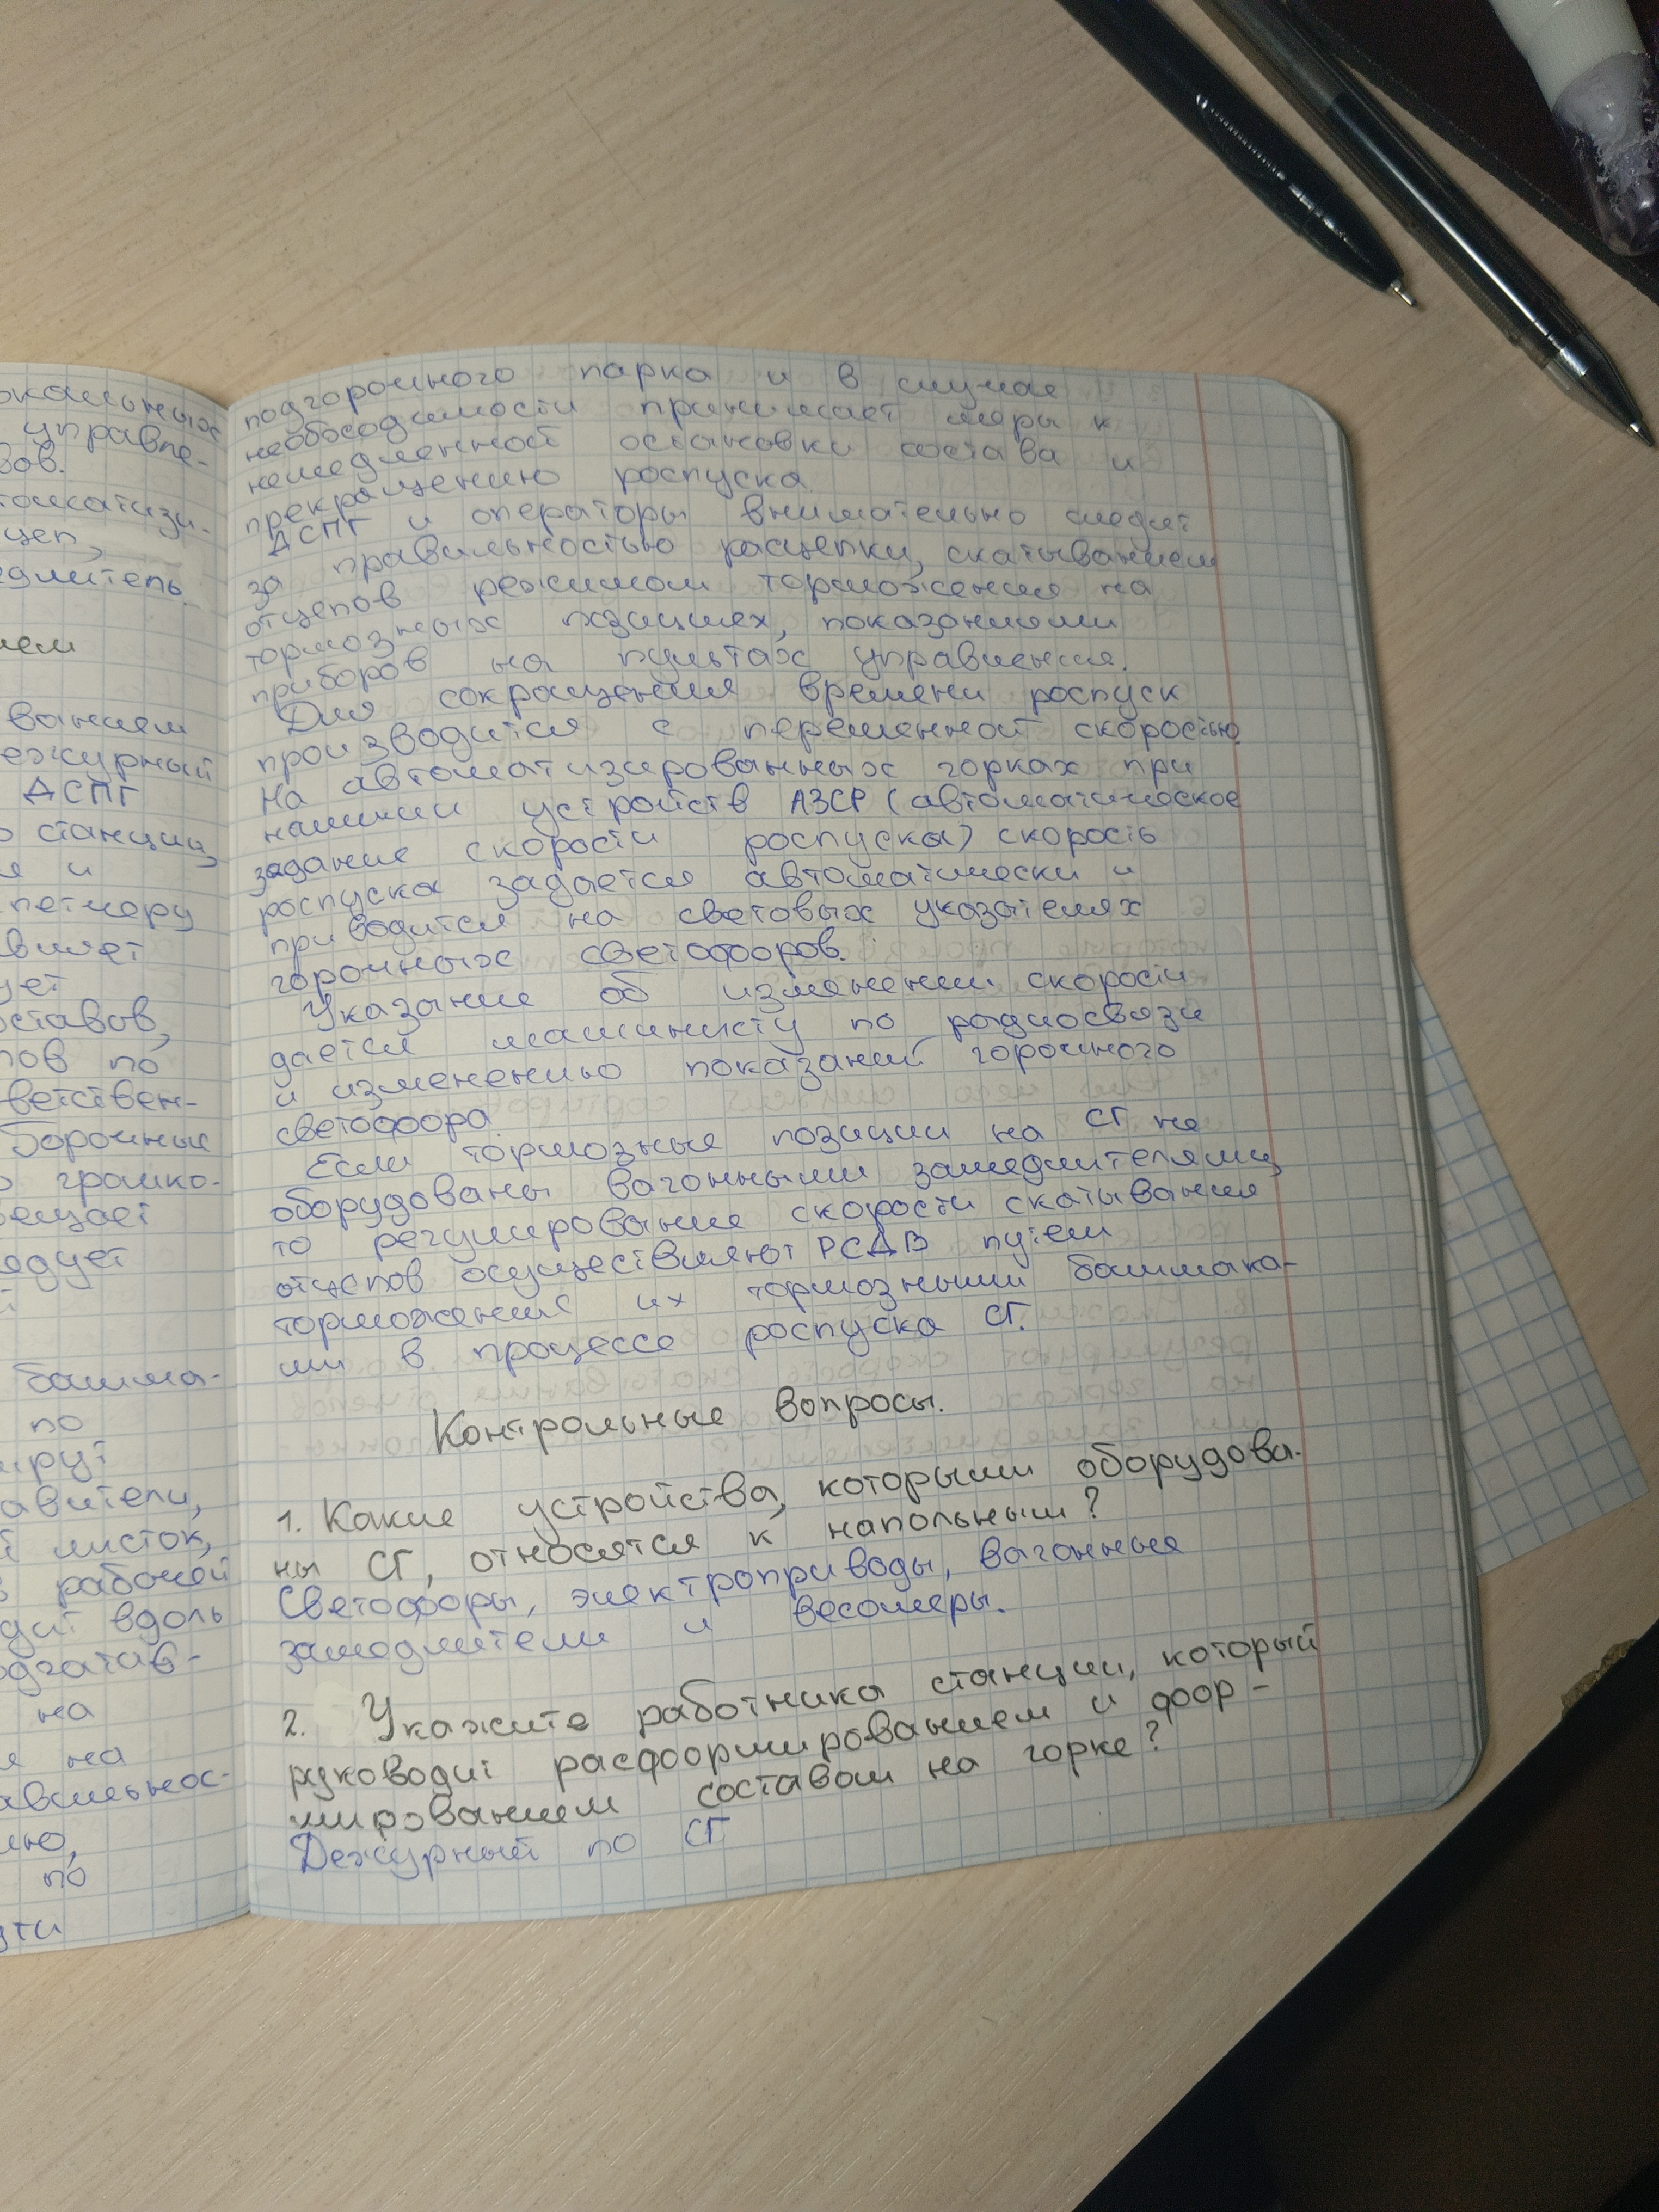 окальных
управле-
вов.
томатизи-
цеп,
едлитель.
ием
ванием
ежурный
ДСПГ
о станции,
я и
петчеру
вляет
ует
оставов,
пов по
ветствен-
борочные
о громко-
вещает
едует
башма-
по
авители,
й листок,
рабочей
дит вдоль
одгатав-
на
я на
авильнос-
ию,
по
ути
подгорочного парка и в случае
необходимости принимает меры к
немедленной остановки состава и
прекращению роспуска
ДСПГ и операторы внимательно следят
за правильностью расцепки, скатыванием
отцепов режимом торможения на
тормозных показаниями
приборов на пультах управления.
Для сокращения времени роспуск
производится с переменной скоростью.
На автоматизированных горках при
наличии устройств АЗСР (автоматическое
задание скорости роспуска) скорость
роспуска задается автоматически и
приводится на световых указателях
горочных светофоров.
Указание об изменении скорости
дается машинисту по радиосвязи
и изменению показаний горочного
светофора
Если тормозные позиции на СГ не
оборудованы вагонными замедлителями,
то регулирование скорости скатывания
отцепов осуществляют РСДВ путем
торможения их тормозными башмака-
ми в процессе роспуска СГ.
Контрольные вопросы.
1. Какие устройства, которыми оборудова-
ны СГ, относятся к напольным?
Светофоры, электроприводы, вагонные
замедлители и весомеры.
2. Укажите работника станции, который
руководит расформированием и фор-
мированием составом на горке?
Дежурный по СГ